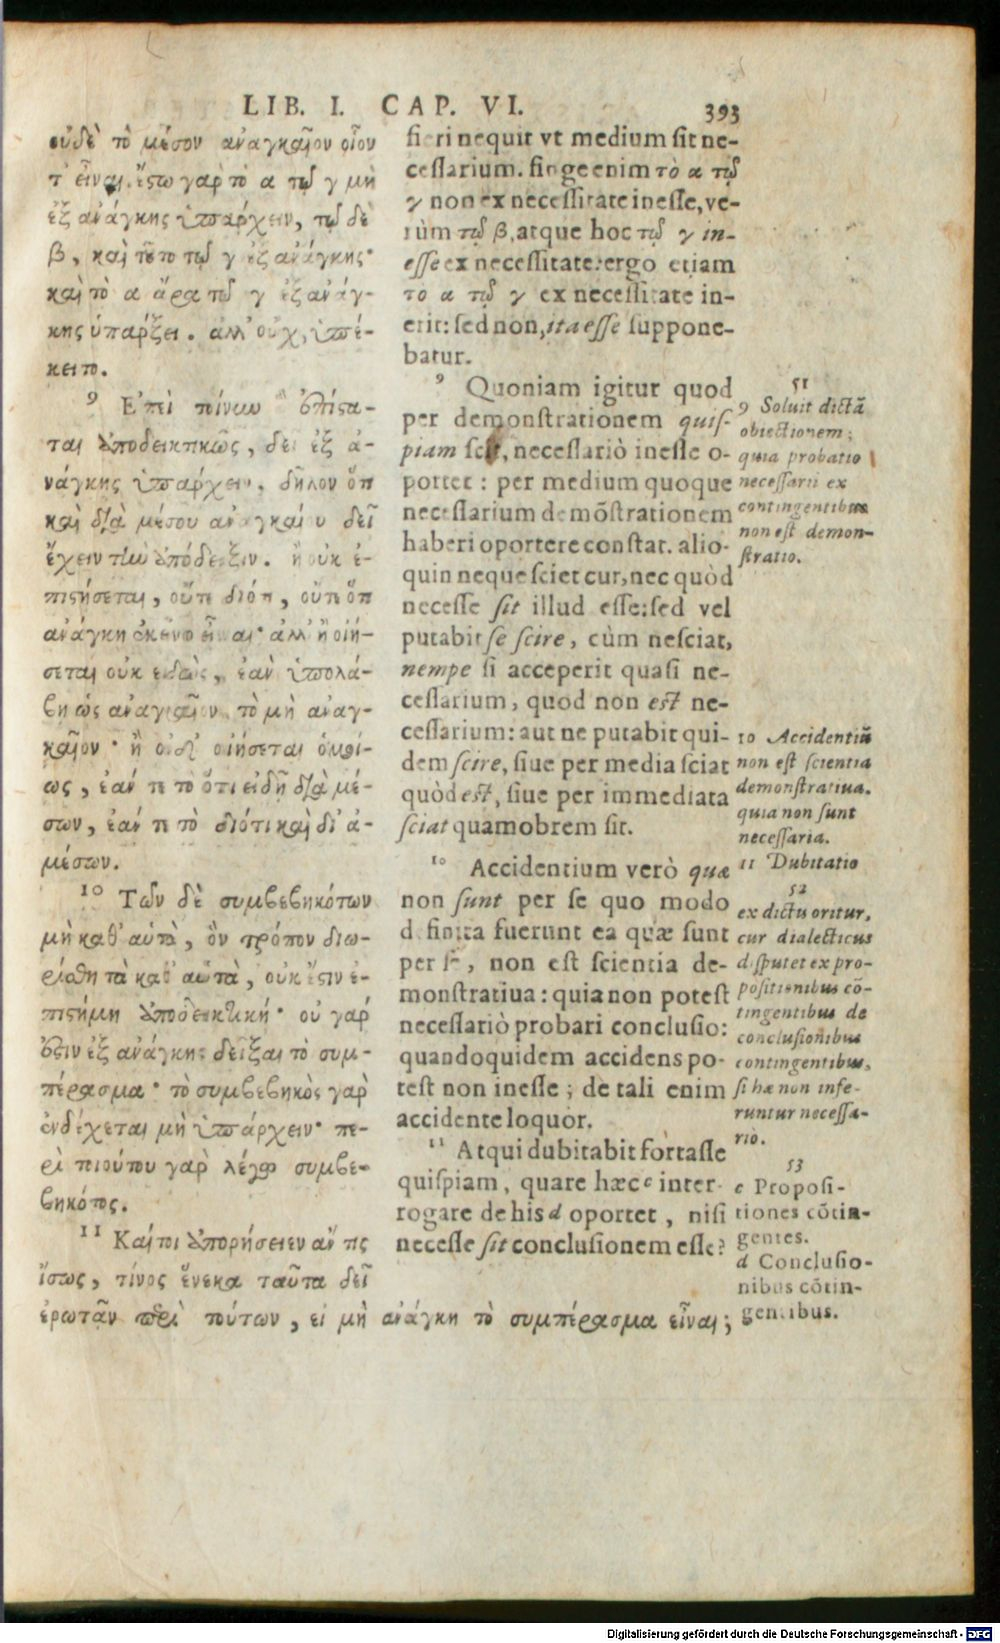 LIB. I. CAP. VI. 393
οὐδὲ τὸ μέσον ἀναγκαῖον οἷόν
τ' εἶναι. ἔστω γὰρ τὸ α τῷ γ μὴ
ἐξ ἀνάγκης ὑπάρχειν, τῷ δὲ
β, καὶ τοῦτο τῷ γ ἐξ ἀνάγκης·
καὶ τὸ α ἄρα τῷ γ ἐξ ἀνάγ-
κης ὑπάρξει. ἀλλ' οὐχ ὑπέ-
κειτο.
9 Ἐπεὶ τοίνυν ἃ ἐπίστα-
ται ἀποδεικτικῶς, δεῖ ἐξ ἀ-
νάγκης ὑπάρχειν. δῆλον ὅτι
καὶ διὰ μέσου ἀναγκαίου δεῖ
ἔχειν τὴν ἀπόδειξιν. ἢ οὐκ ἐ-
πιστήσεται, οὔτε διότι, οὔτε ὅτι
ἀνάγκη ἐκεῖνο εἶναι· ἀλλ' ἢ οἰή-
σεται οὐκ εἰδὼς, ἐὰν ὑπολά-
βῃ ὡς ἀναγκαῖον τὸ μὴ ἀναγ-
καῖον· ἢ οὐδ' οἰήσεται ὁμοί-
ως, ἐάν τε τὸ ὅτι εἰδῇ διὰ μέ-
σων, ἐάν τε τὸ διότι καὶ δι' ἀ-
μέσων.
10 Τῶν δὲ συμβεβηκότων
μὴ καθ' αὑτὰ, ὃν τρόπον διω-
ρίσθη τὰ καθ' αὑτὰ, οὐκ ἔστιν ἐ-
πιστήμη ἀποδεικτική· οὐ γάρ
ἐστιν ἐξ ἀνάγκης δεῖξαι τὸ συμ-
πέρασμα· τὸ συμβεβηκὸς γὰρ
ἐνδέχεται μὴ ὑπάρχειν· πε-
ρὶ τοιούτου γὰρ λέγω συμβε-
βηκότος.
11 Καίτοι ἀπορήσειεν ἄν τις
ἴσως, τίνος ἕνεκα ταῦτα δεῖ
ἐρωτᾶν περὶ τούτων, εἰ μὴ ἀνάγκη τὸ συμπέρασμα εἶναι;
fieri nequit vt medium sit ne-
cessarium. finge enim τὸ α τῷ
γ non ex necessitate inesse, ve-
rùm τῷ β, atque hoc τῷ γ in-
esse ex necessitate: ergo etiam
το α τῷ γ ex necessitate in-
erit: sed non, ita esse suppone-
batur.
9 Quoniam igitur quod
per demonstrationem quis-
piam scit, necessariò inesse o-
portet: per medium quoque
necessarium demõstrationem
haberi oportere constat. alio-
quin neque sciet cur, nec quòd
necesse sit illud esse: sed vel
putabit se scire, cùm nesciat,
nempe si acceperit quasi ne-
cessarium, quod non est ne-
cessarium: aut ne putabit qui-
dem scire, siue per media sciat
quòd est, siue per immediata
sciat quamobrem sit.
10 Accidentium verò quæ
non sunt per se quo modo
definita fuerunt ea quæ sunt
per se, non est scientia de-
monstratiua: quia non potest
necessariò probari conclusio:
quandoquidem accidens po-
test non inesse; de tali enim
accidente loquor.
11 Atqui dubitabit fortasse
quispiam, quare hæc c inter-
rogare de his d oportet, nisi
necesse sit conclusionem esse?
51
9 Soluit dictã
obiectionem;
quia probatio
necessarii ex
contingentibus
non est demon-
stratio.
10 Accidentiũ
non est scientia
demonstratiua.
quia non sunt
necessaria.
11 Dubitatio
52
ex dictis oritur,
cur dialecticus
disputet ex pro-
positionibus cõ-
tingentibus de
conclusionibus
contingentibus,
si hæ non infe-
runtur necessa-
rio.
53
c Proposi-
tiones cõtin-
gentes.
d Conclusio-
nibus cõtin-
gentibus.
Digitalisierung gefördert durch die Deutsche Forschungsgemeinschaft - DFG